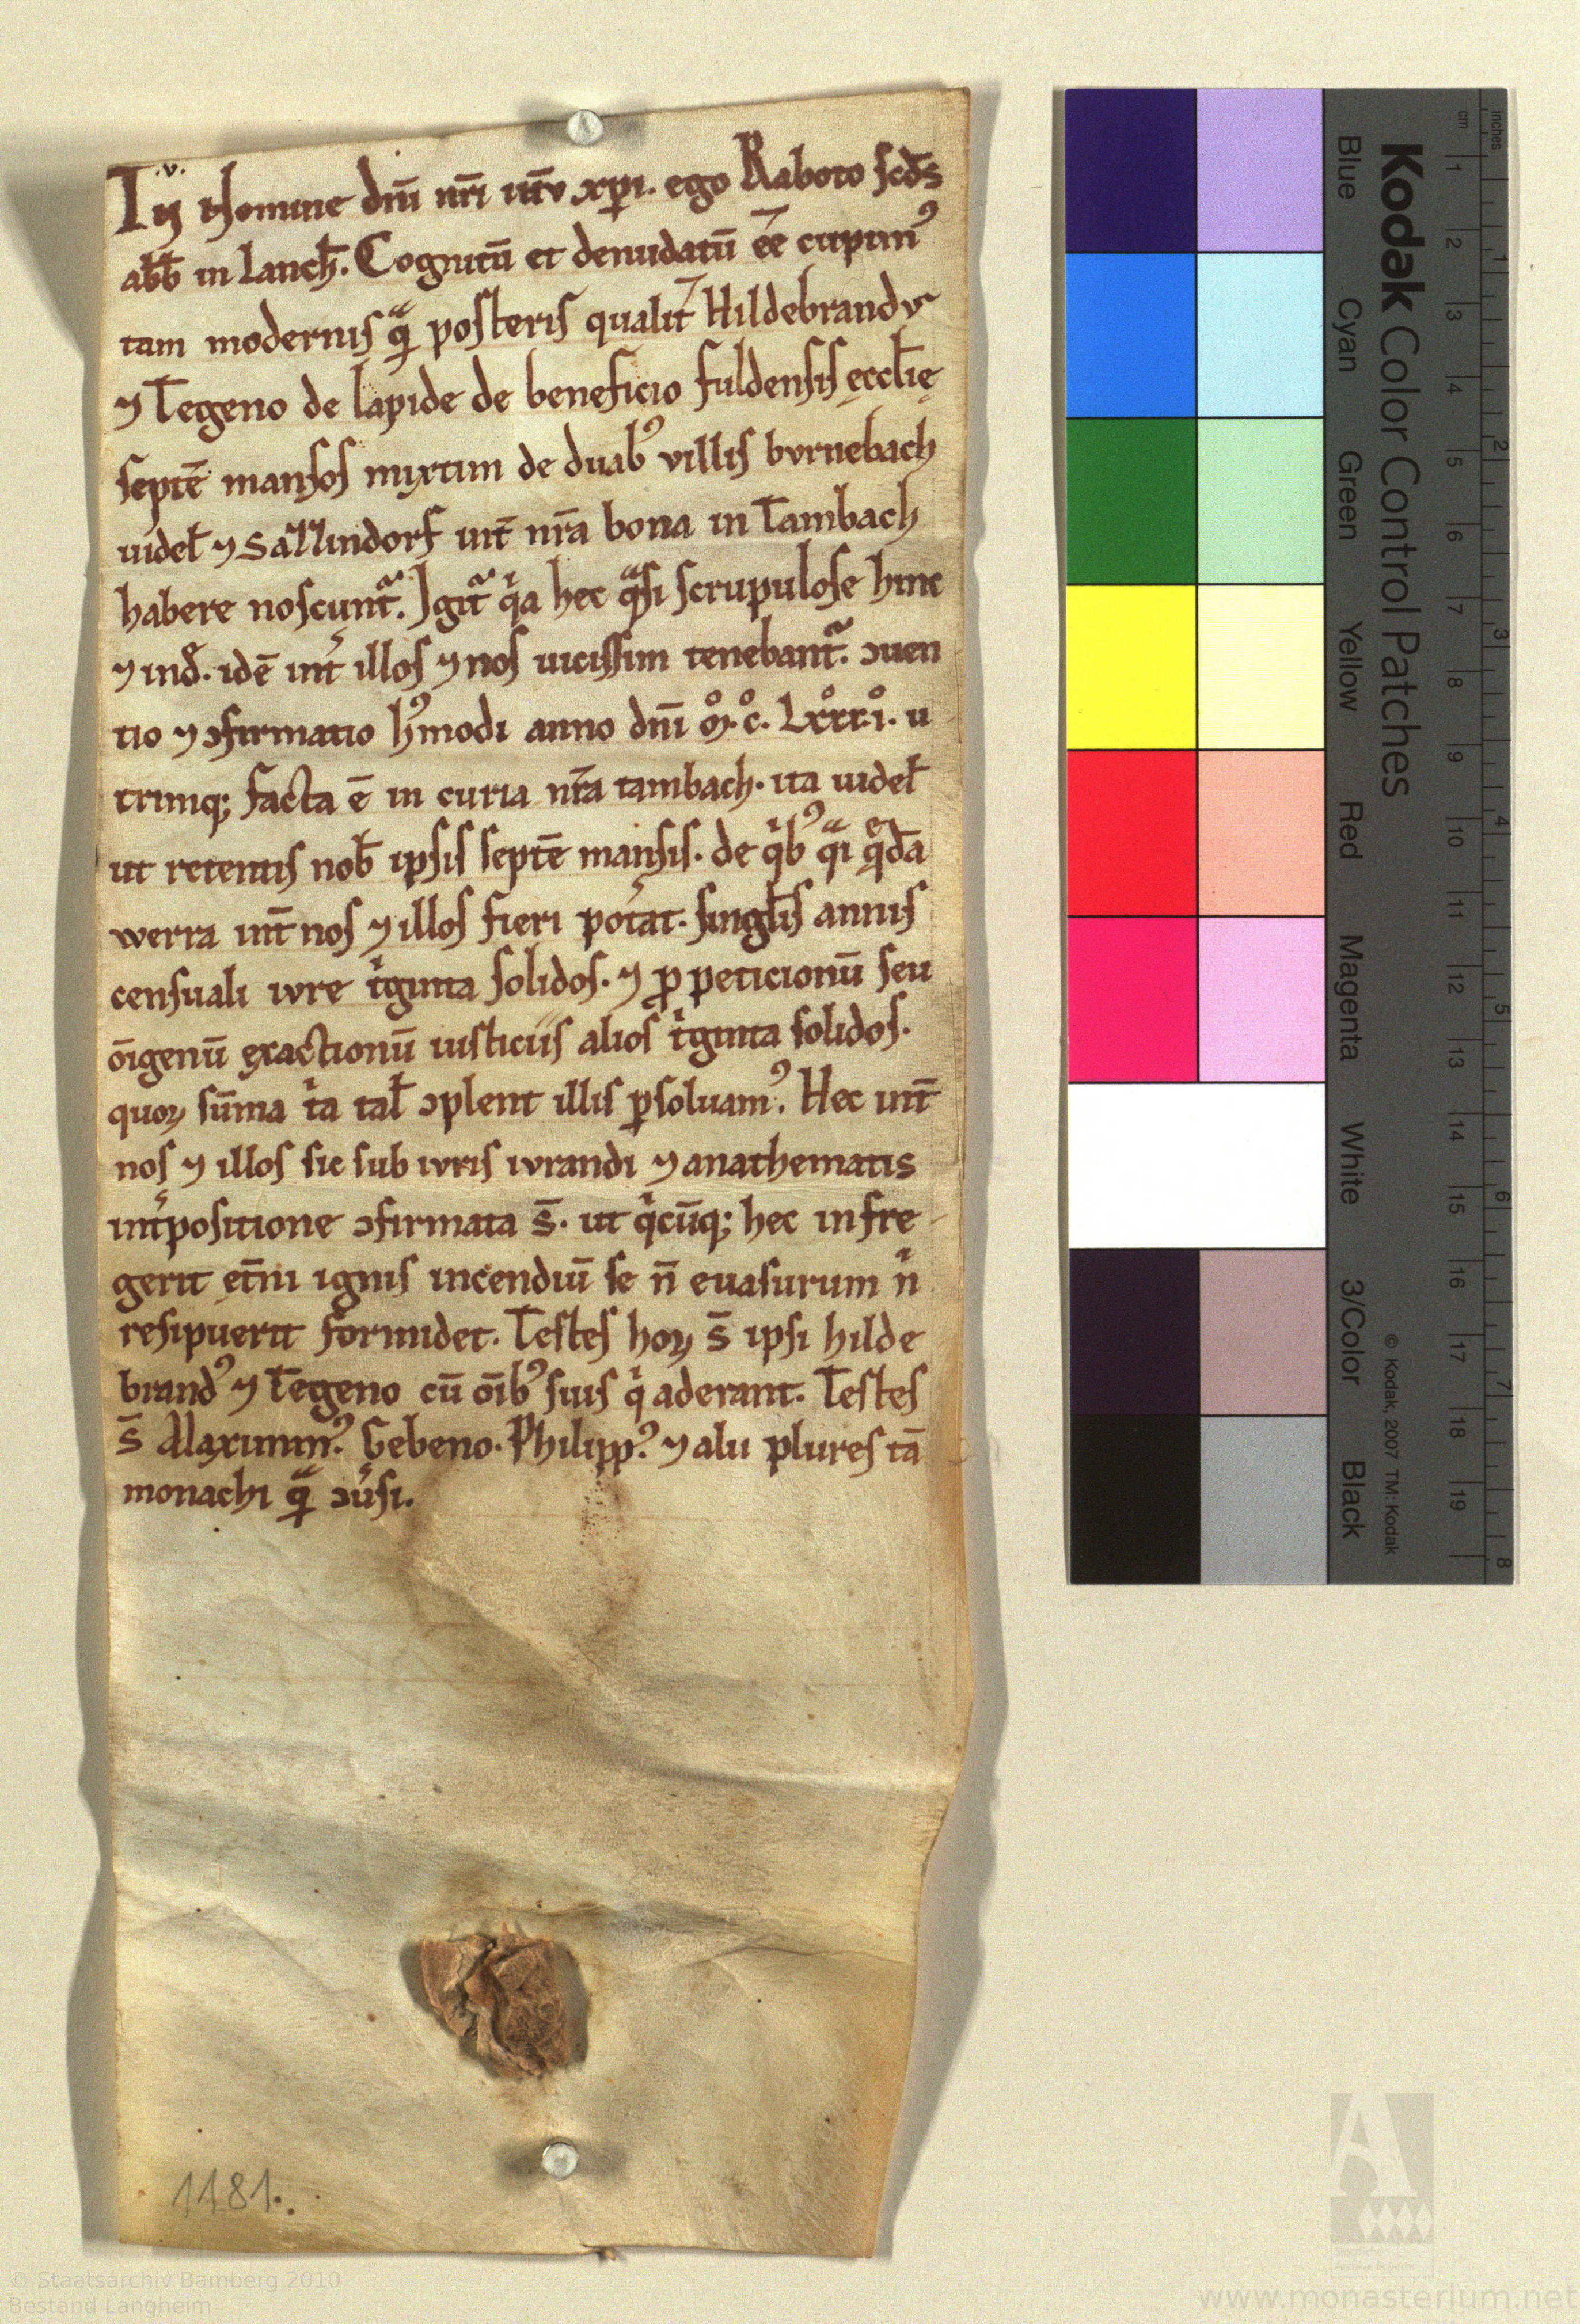 In Nomine dnī nr̄i iħv xp̄i. ego Raboto scd̄s
abƀ in Lancħ. Cognitū et denudatū ēe cupimꝰ
tam modernis qͣm posteris qualit̄ Hildebrandvs
⁊ Tegeno de lapide de beneficio fuldensis ęccl̄ię
septē mansos mixtim de duabꝰ villis bvrnebach
uidel̄ ⁊ Saɱindorf int̄ nr̄a bona in Tambach
habere noscunt᷑. Igit᷑ qͥa hec qͣsi scrupulose hinc
⁊ ind̄. idē int̄ illos ⁊ nos uicissim tenebant᷑. ↄuen
tio ⁊ ↄfirmatio hꝰmodi anno dnī mͦ. cͦ. Lxͦxx.iͦ. u
trimq; facta ē in curia nr̄a tambach. ita uidel̄
ut retentis nob̄ ipsis septē mansis. de qͥbꝰ qͣi qͤdā
werra int̄ nos ⁊ illos fieri pot̄at. singl̄is annis
censuali ivre tͥginta solidos. ⁊ ꝓ peticionū seu
ōigenū exactionū iusticiis alios tͥginta solidos.
quoꝝ sūma tͥa tal̄ ↄplent illis ꝑsoluamꝰ. Hec int̄
nos ⁊ illos sic sub ivris ivrandi ⁊ anathematis
int̄positione ↄfirmata s̄. ut qͥcūq; hec infre
gerit et̄ni ignis incendiū se n̄ euasurum nͥ
resipuerit formidet. Testes hoꝝ s̄ ipsi hilde
brandꝰ ⁊ Tegeno cū ōibꝰ suis qͥ aderant. Testes
s̄ Maximinꝰ. Gebeno. Philippꝰ. ⁊ alii plures tā
monachi qͣm ↄu̓si.
1181.
Kodak Color Control Patches
Blue Cyan Green Yellow Red Magenta White 3/Color Black
© Kodak, 2007 TM: Kodak
cm 1 2 3 4 5 6 7 8 9 10 11 12 13 14 15 16 17 18 19
inches 1 2 3 4 5 6 7 8
© Staatsarchiv Bamberg 2010
Bestand Langheim
www.monasterium.net